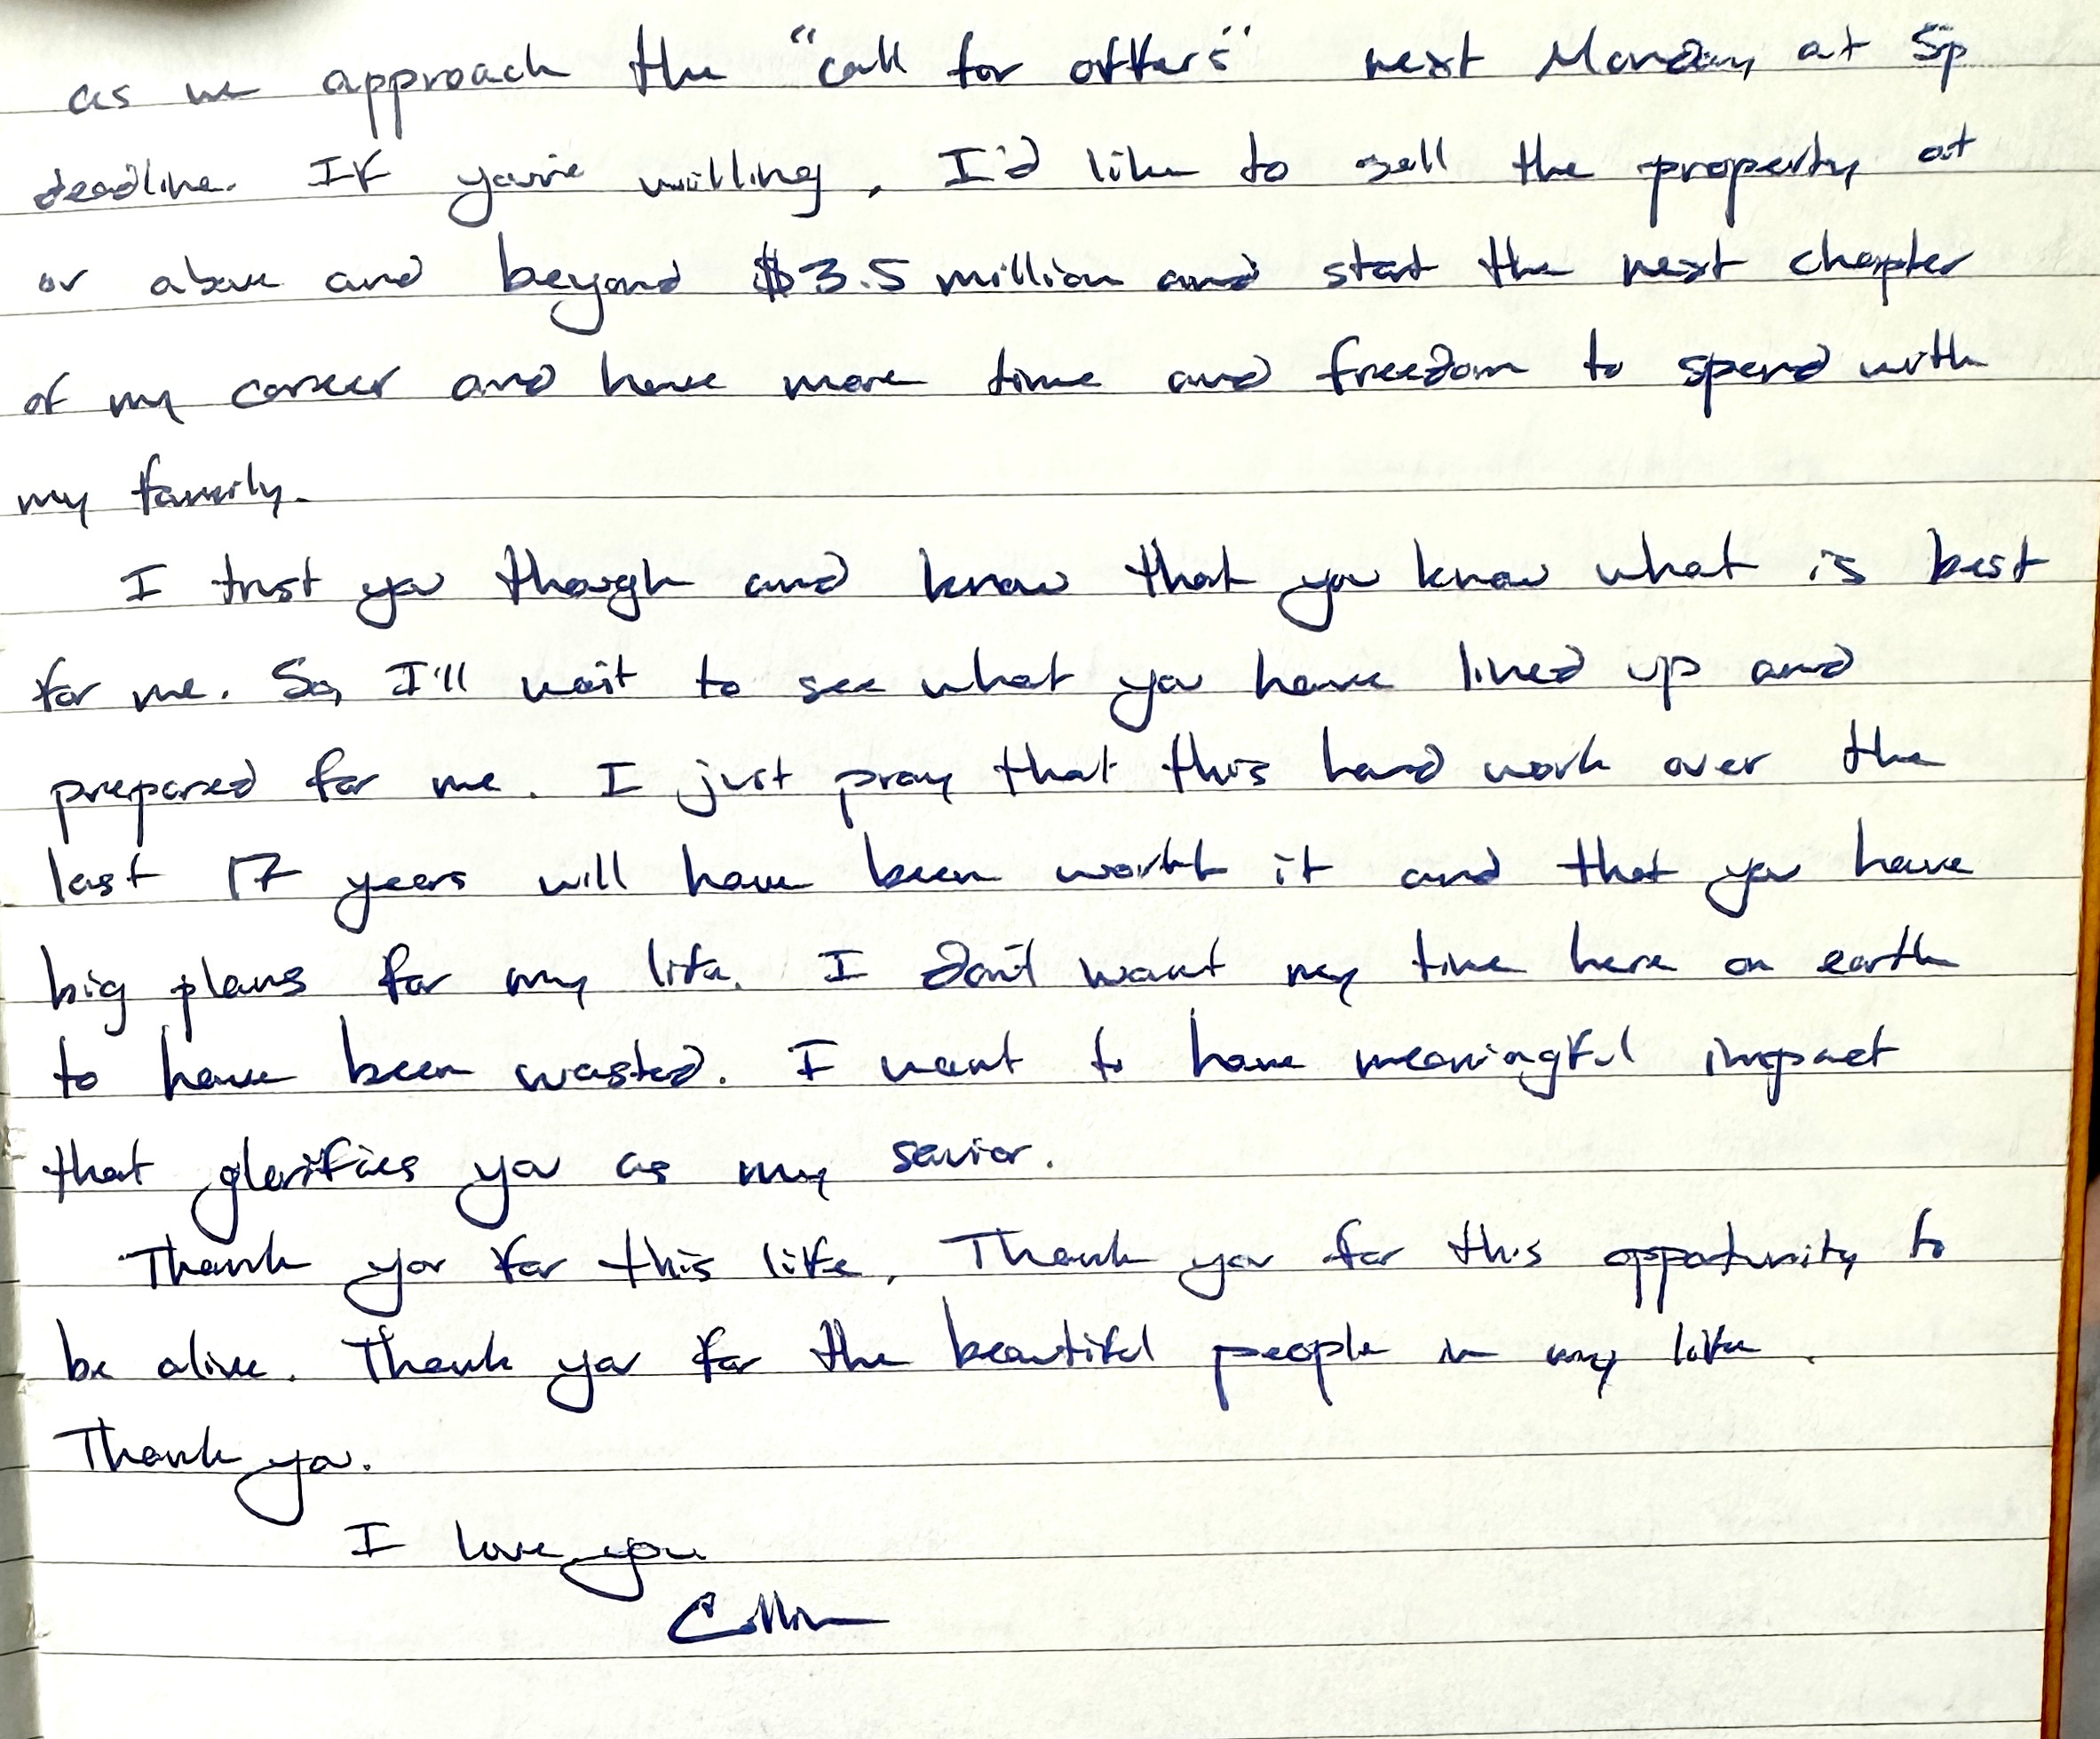 as we approach the "call for offers" next Monday at 5p
deadline. If you're willing, I'd like to sell the property at
or above and beyond $3.5 million and start the next chapter
of my career and have more time and freedom to spend with
my family.
I trust you though and know that you know what is best
for me. So, I'll wait to see what you have lined up and
prepared for me. I just pray that this hard work over the
last 17 years will have been worth it and that you have
big plans for my life. I don't want my time here on earth
to have been wasted. I want to have meaningful impact
that glorifies you as my savior.
Thank you for this life. Thank you for this opportunity to
be alive. Thank you for the beautiful people in my life.
Thank you.
I love you
Collin